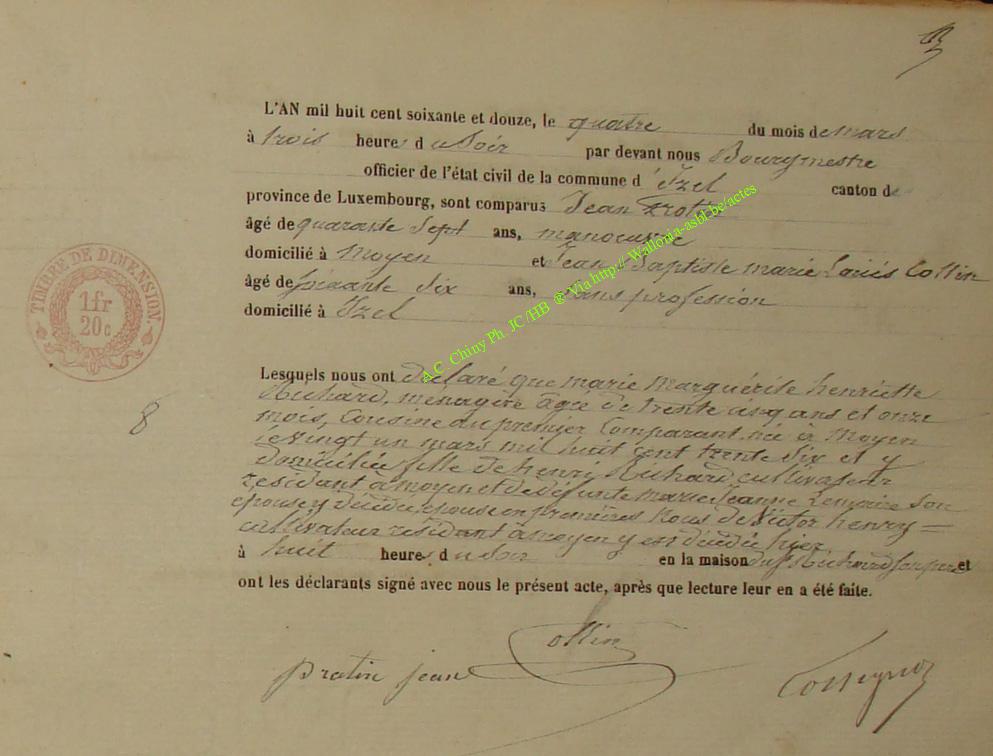 L'AN mil huit cent soixante et douze, le quatre du mois de mars
à trois heures du Soir par devant nous Bourgmestre
officier de l'état civil de la commune d'Izel canton de
province de Luxembourg, sont comparus Jean
âgé de quarante Sept ans, manoeuvre
domicilié à Moyen et Jean Baptiste marie Louis Collin
âgé de Six ans, Sans profession
domicilié à Izel
TIMBRE DE DIMENSION.
1fr
20c
A.C. Chiny Ph. JC/HB @ Via http://Wallonia-asbl.be/actes
Lesquels nous ont déclaré que marie Marguérite henriette
Richard, ménagère agée de trente cinq ans et onze
mois, Cousine du premier Comparant née à Moyen
le vingt un mars mil huit cent trente Six et y
domiciliée fille de henri Richard cultivateur
résidant à moyen et de défunte marie Jeanne Lemaire Son
épouse y décédée, épouse en premières Nous de Victor henry =
cultivateur résidant à moyen y est décédée hier
à huit heures du Soir en la maison dudit Richard Son père et
ont les déclarants signé avec nous le présent acte, après que lecture leur en a été faite.
8
Collin
pratin jean